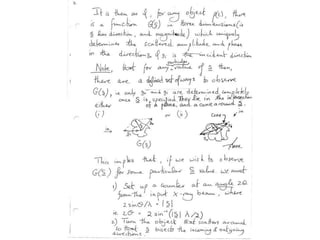 It is then as if, for any object ρ(r), there
is a function G(S) in three dimensions (
S has direction, and magnitude) which uniquely
determines the scattered amplitude and phase
in the direction S if is the incident direction
Note, that for any particular value of S then,
there are a defined set of ways to observe
G(S), ie only and are determined completely
once S is specified They lie in the intersection
either of a plane, and a cone around S.
(i) or (ii) Cone
Plane
This implies that, if we wish to observe
G(S) for some particular S value we must
1) Set up a counter at an angle 2θ
from the input X-ray beam, where
2 sin θ/λ = |S|
ie. 2θ = 2 sin⁻¹ (|S| λ/2)
2) Turn the object that scatters around
so that S bisects the incoming & outgoing
directions.